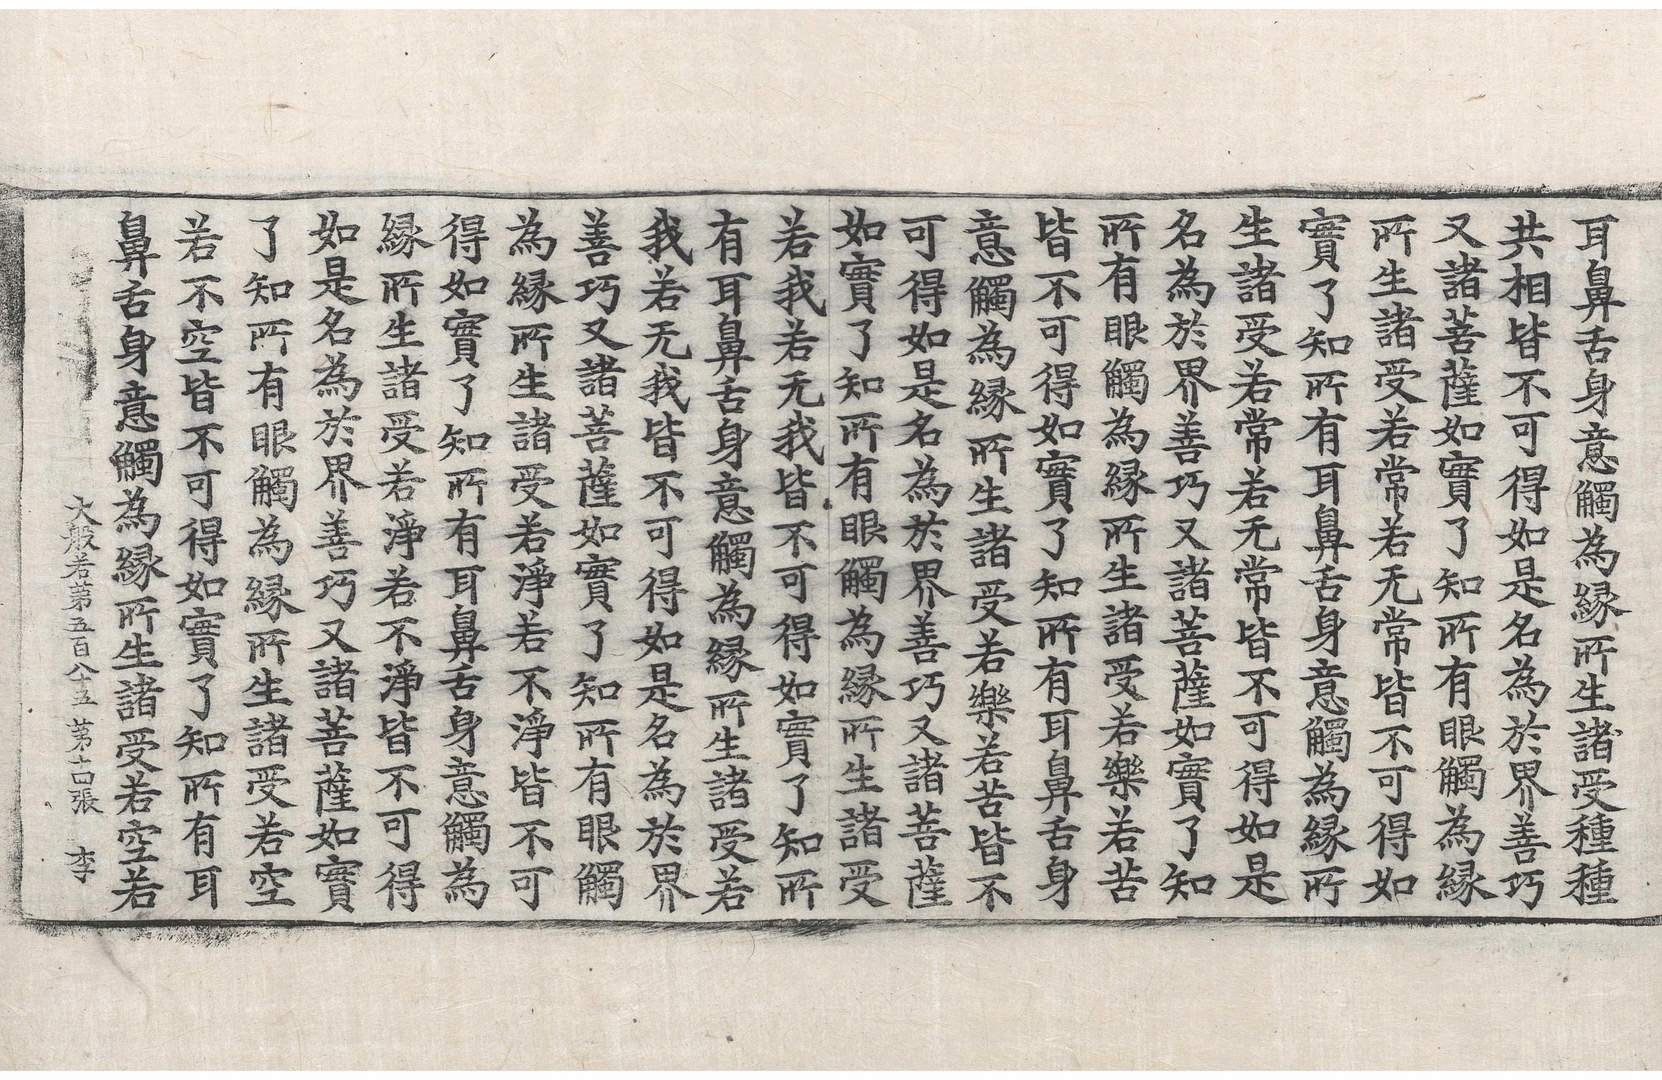 耳鼻舌身意觸為緣所生諸受種種
共相皆不可得如是名為於界善巧
又諸菩薩如實了知所有眼觸為緣
所生諸受若常若无常皆不可得如
實了知所有耳鼻舌身意觸為緣所
生諸受若常若无常皆不可得如是
名為於界善巧又諸菩薩如實了知
所有眼觸為緣所生諸受若樂若苦
皆不可得如實了知所有耳鼻舌身
意觸為緣所生諸受若樂若苦皆不
可得如是名為於界善巧又諸菩薩
如實了知所有眼觸為緣所生諸受
若我若无我皆不可得如實了知所
有耳鼻舌身意觸為緣所生諸受若
我若无我皆不可得如是名為於界
善巧又諸菩薩如實了知所有眼觸
為緣所生諸受若淨若不淨皆不可
得如實了知所有耳鼻舌身意觸為
緣所生諸受若淨若不淨皆不可得
如是名為於界善巧又諸菩薩如實
了知所有眼觸為緣所生諸受若空
若不空皆不可得如實了知所有耳
鼻舌身意觸為緣所生諸受若空若
大般若第五百八十五 第十四張 李